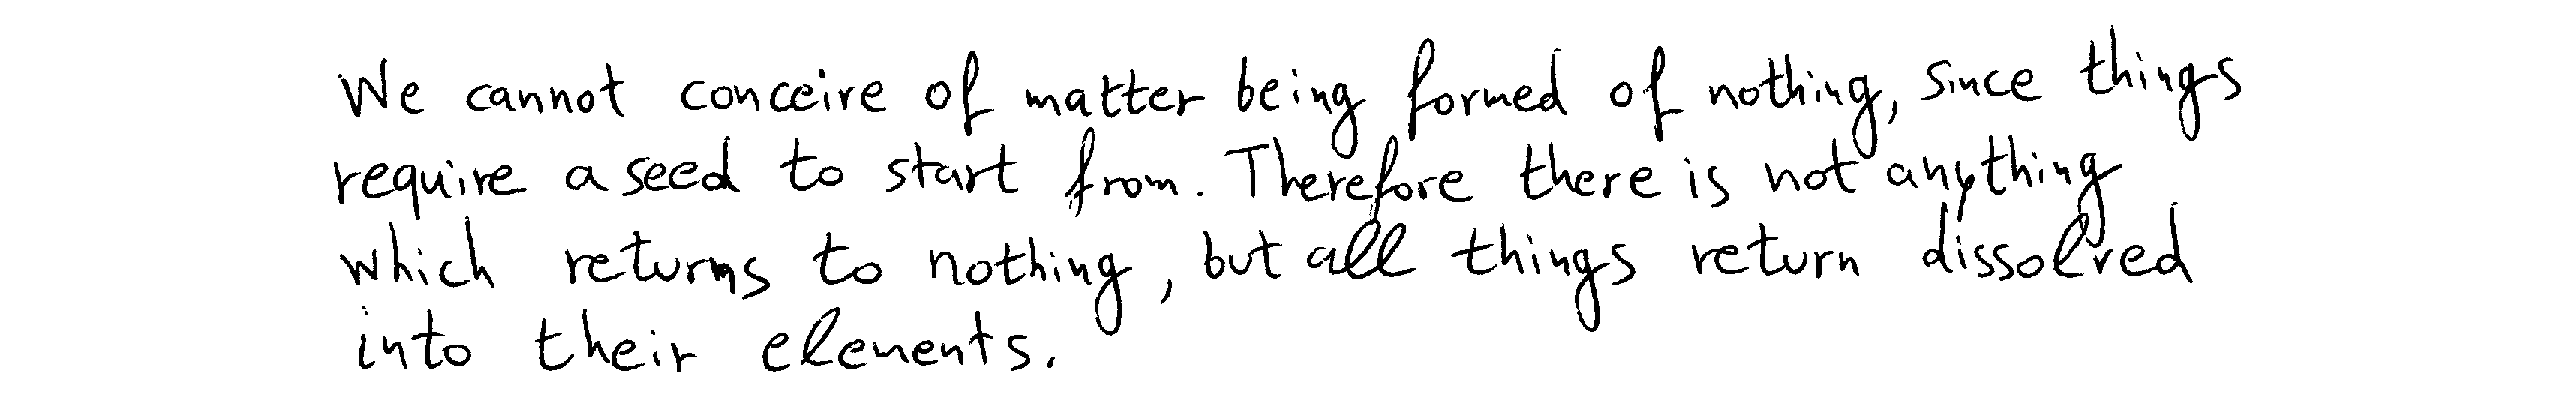 We cannot conceive of matter being formed of nothing, since things
require a seed to start from. Therefore there is not anything
which returns to nothing, but all things return dissolved
into their elements.